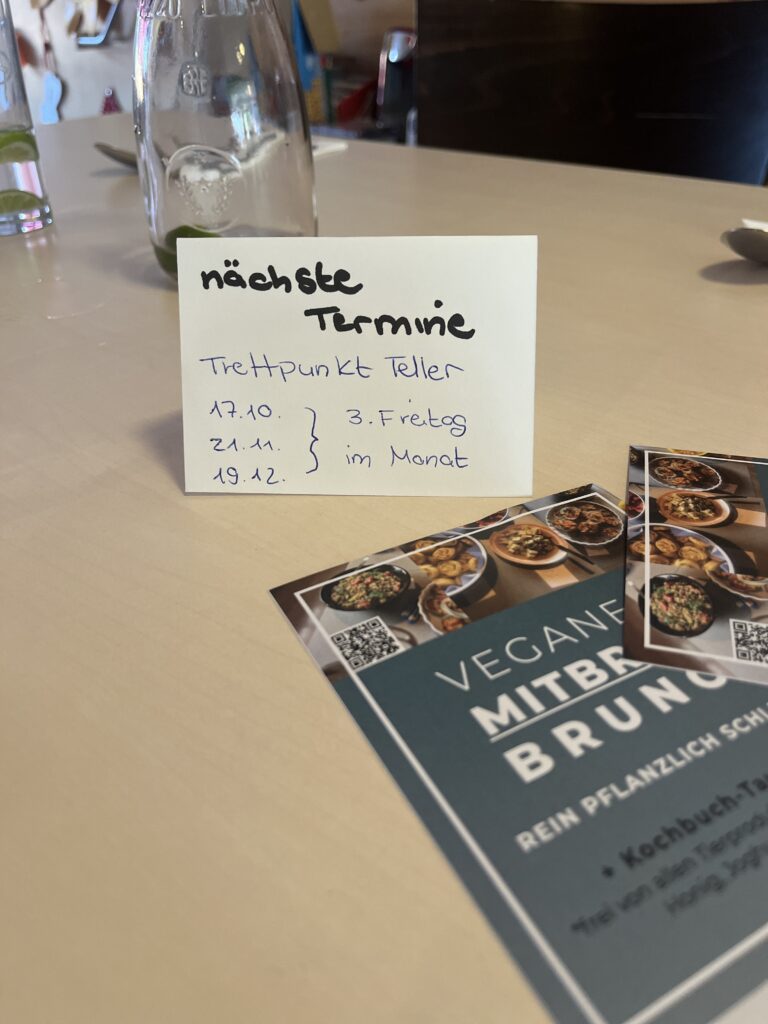 nächste
Termine
Treffpunkt Teller
17.10.
21.11.
19.12.
3. Freitag
im Monat
VEGANE
MITBR
BRUNC
REIN PFLANZLICH SCHL
+ Kochbuch-Tau
*frei von allen Tierprodu
Honig, Joghu